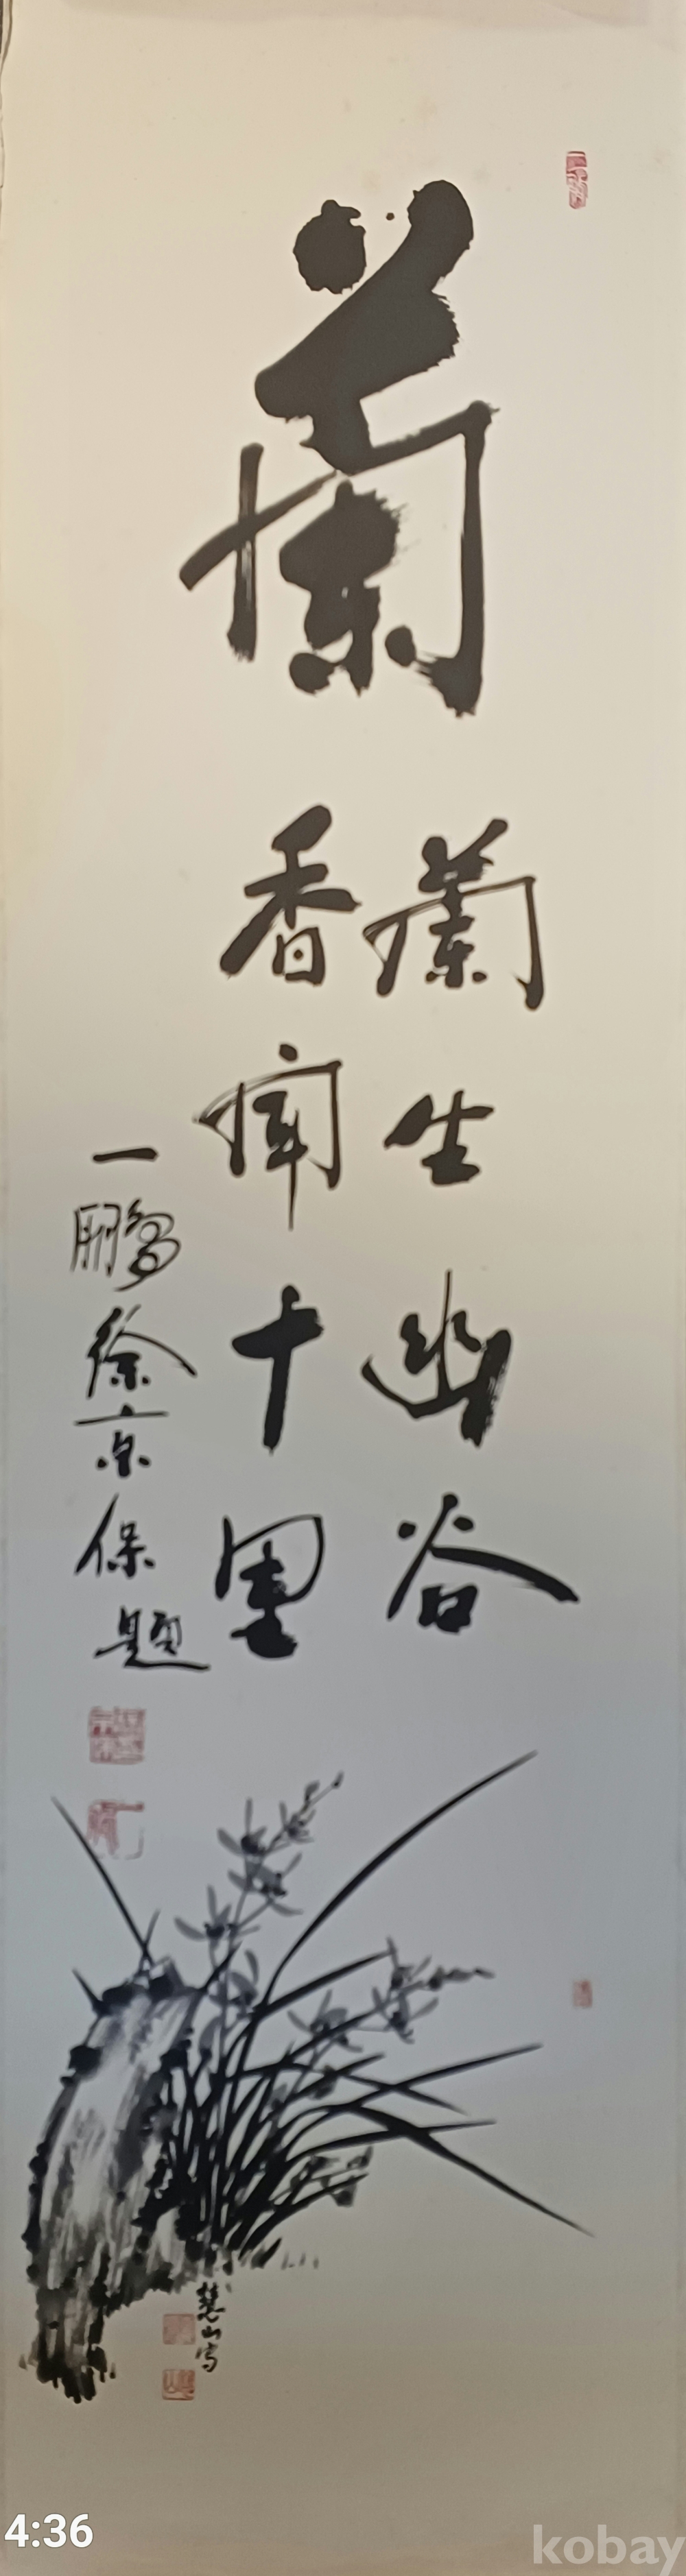 蘭
蘭生幽谷
香聞十里
一鵬徐京保題
慧山寫
4:36
kobay